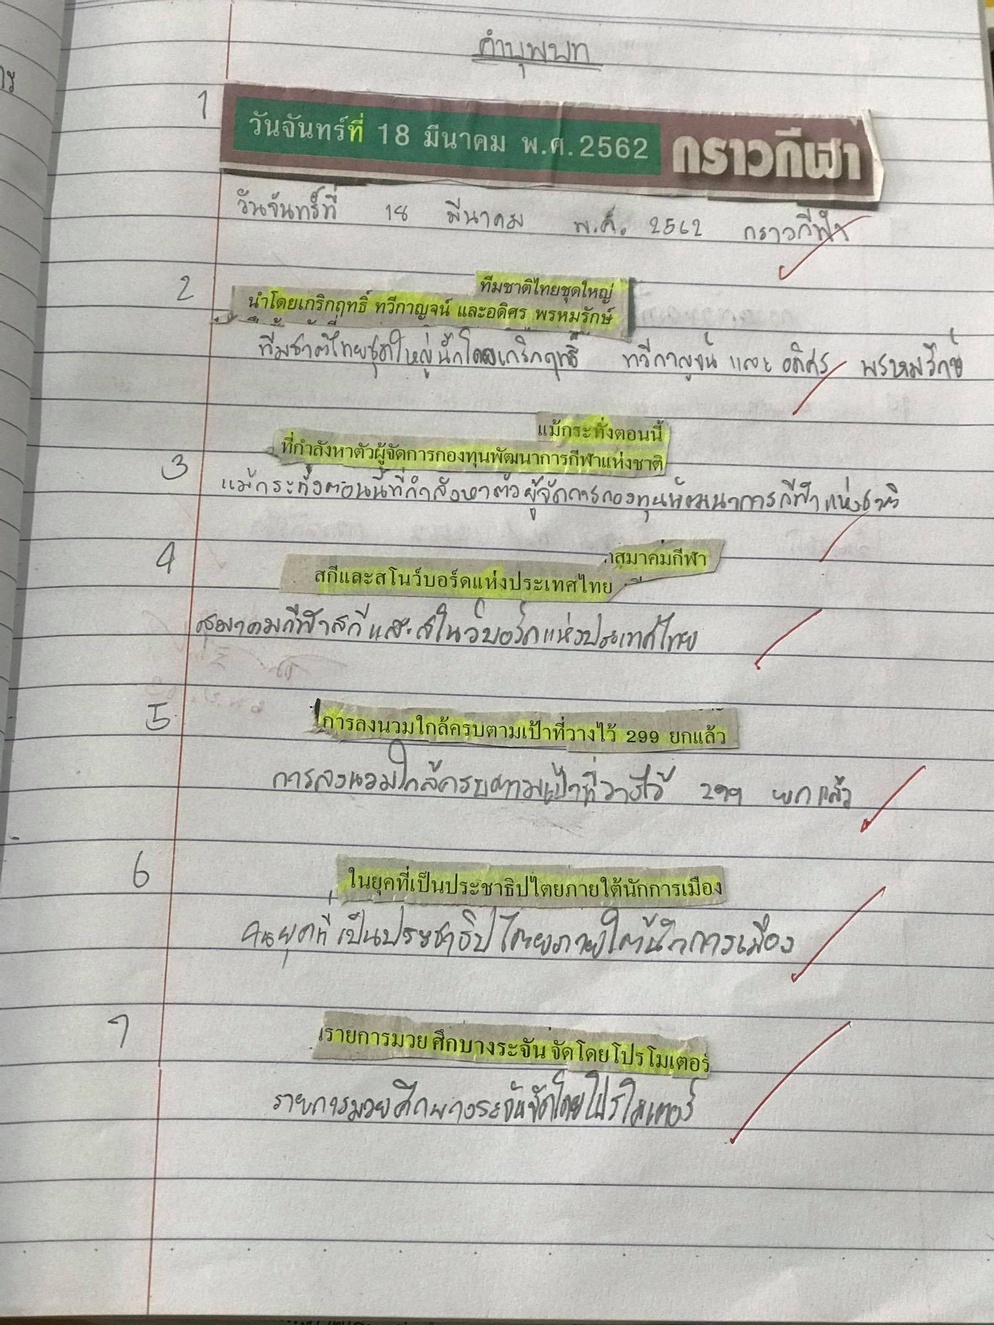 คำบุพบท
1
วันจันทร์ที่ 18 มีนาคม พ.ศ. 2562 กราวกีฬา
วันจันทร์ที่ 18 มีนาคม พ.ศ. 2562 กราวกีฬา
2
ทีมชาติไทยชุดใหญ่
นำโดยเกริกฤทธิ์ ทวีกาญจน์ และอดิศร พรหมรักษ์
ทีมชาติไทยชุดใหญ่นำโดยเกริกฤทธิ์ ทวีกาญจน์ และ อดิศร พรหมรักษ์
แม้กระทั่งตอนนี้
3
ที่กำลังหาตัวผู้จัดการกองทุนพัฒนาการกีฬาแห่งชาติ
แม้กระทั่งตอนนี้ที่กำลังหาตัวผู้จัดการกองทุนพัฒนาการกีฬาแห่งชาติ
4
สมาคมกีฬา
สกีและสโนว์บอร์ดแห่งประเทศไทย
สมาคมกีฬาสกีและสโนว์บอร์ดแห่งประเทศไทย
5
การลงนวมใกล้ครบตามเป้าที่วางไว้ 299 ยกแล้ว
การลงนวมใกล้ครบตามเป้าที่วางไว้ 299 ยกแล้ว
6
ในยุคที่เป็นประชาธิปไตยภายใต้นักการเมือง
ในยุคที่เป็นประชาธิปไตยภายใต้นักการเมือง
7
รายการมวย ศึกบางระจัน จัดโดยโปรโมเตอร์
รายการมวยศึกบางระจันจัดโดยโปรโมเตอร์